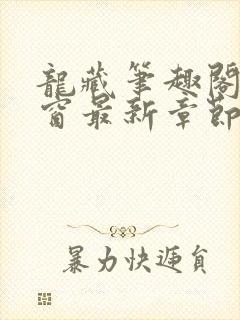 龍藏筆趣閣
窗最新章節
暴力快遞員